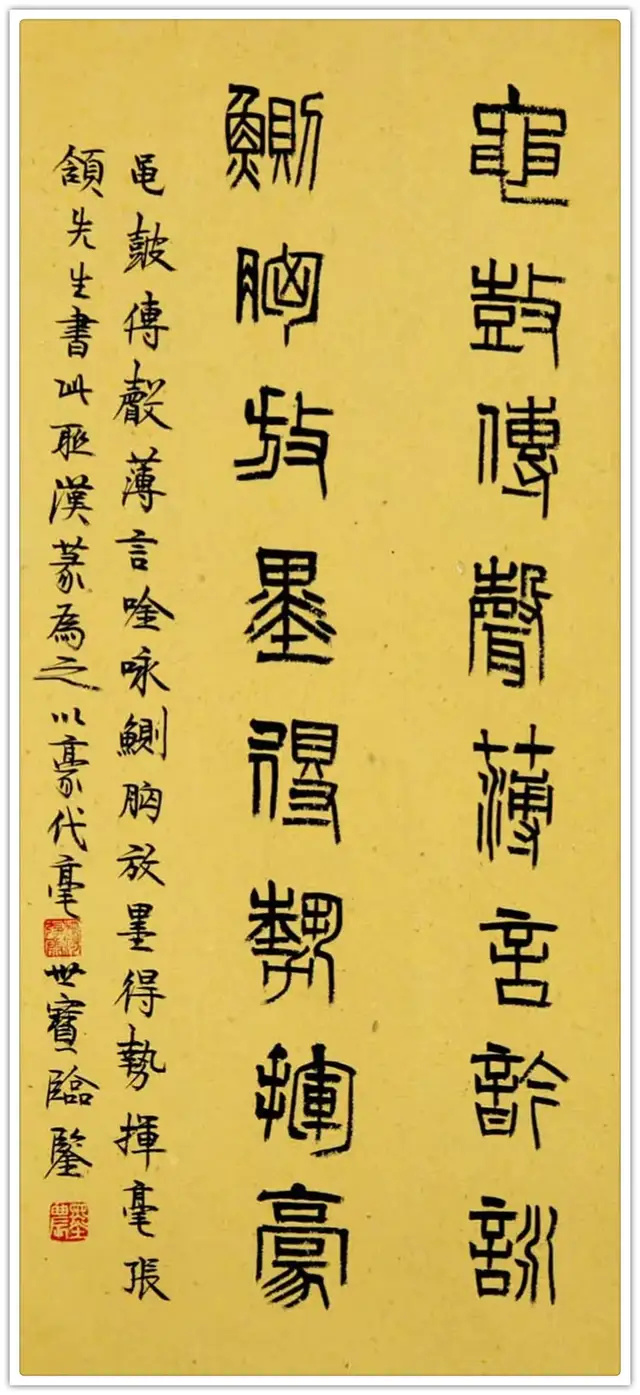 黽鼓傳聲薄言訡詠
鰂胸放墨得勢揮豪
黽皷傳聲薄言唫咏鰂胸放墨得勢揮毫張
頷先生書此聯漢篆為之以豪代毫世寶臨鑒